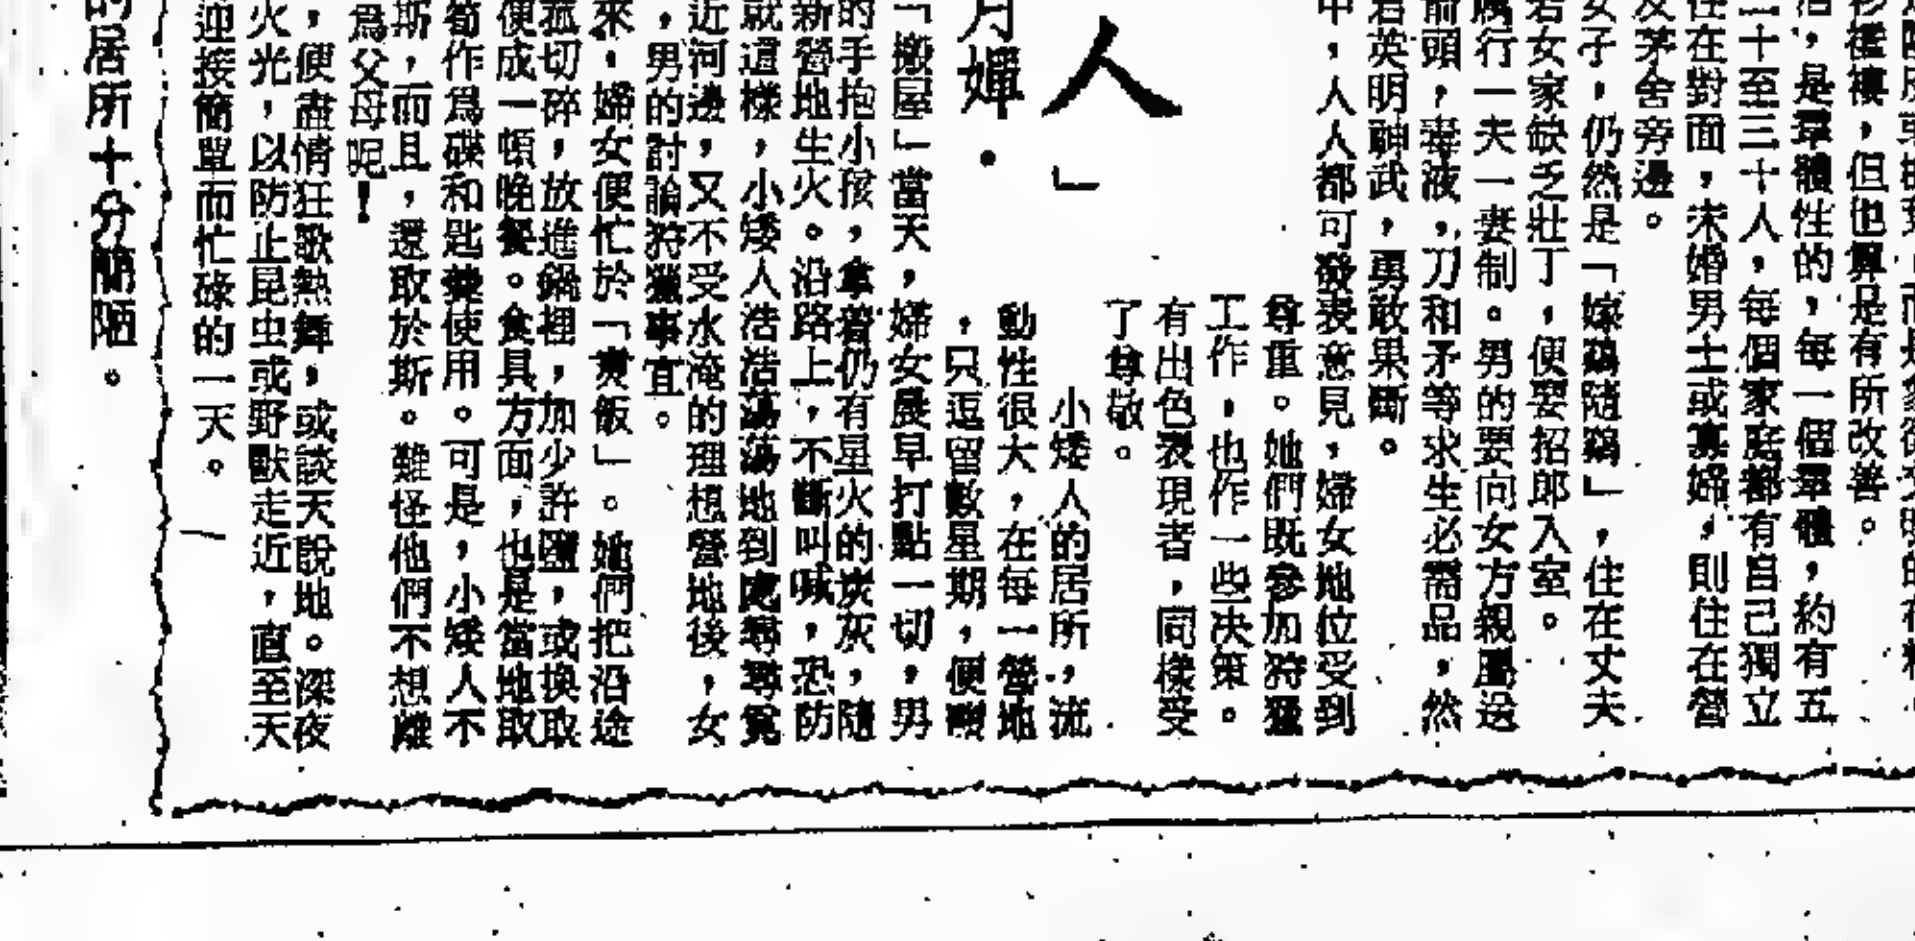 衫襤褸，但也算是有所改善。
活，是羣體性的，每一個羣體，約有五
二十至三十人，每個家庭都有自己獨立
住在對面，未婚男士或寡婦，則住在營
及茅舍旁邊。
女子，仍然是「嫁鷄隨鷄」，住在丈夫
若女家缺乏壯丁，便要招郎入室。
厲行一夫一妻制。男的要向女方親屬送
箭頭，毒液，刀和矛等求生必需品，然
若英明神武，勇敢果斷。
中，人人都可發表意見，婦女地位受到
尊重。她們既參加狩獵
工作，也作一些决策。
有出色表現者，同樣受
了尊敬。
人」
月嬋．
小矮人的居所，流
動性很大，在每一營地
，只逗留數星期，便
「搬屋」當天，婦女晨早打點一切，男
的手抱小孩，拿着仍有星火的炭灰，隨
新營地生火。沿路上，不斷叫喊，恐防
就這樣，小矮人浩浩蕩蕩地到處尋尋覓
近河邊，又不受水淹的理想營地後，女
，男的討論狩獵事宜。
來，婦女便忙於「煑飯」。她們把沿途
菰切碎，放進鍋裡，加少許鹽，或換取
便成一頓晚餐。食具方面，也是當地取
筍作爲碟和匙羹使用。可是，小矮人不
斯，而且，還取於斯。難怪他們不想離
爲父母呢！
，便盡情狂歌熱舞，或談天說地。深夜
火光，以防止昆虫或野獸走近，直至天
迎接簡單而忙碌的一天。
的居所十分簡陋。